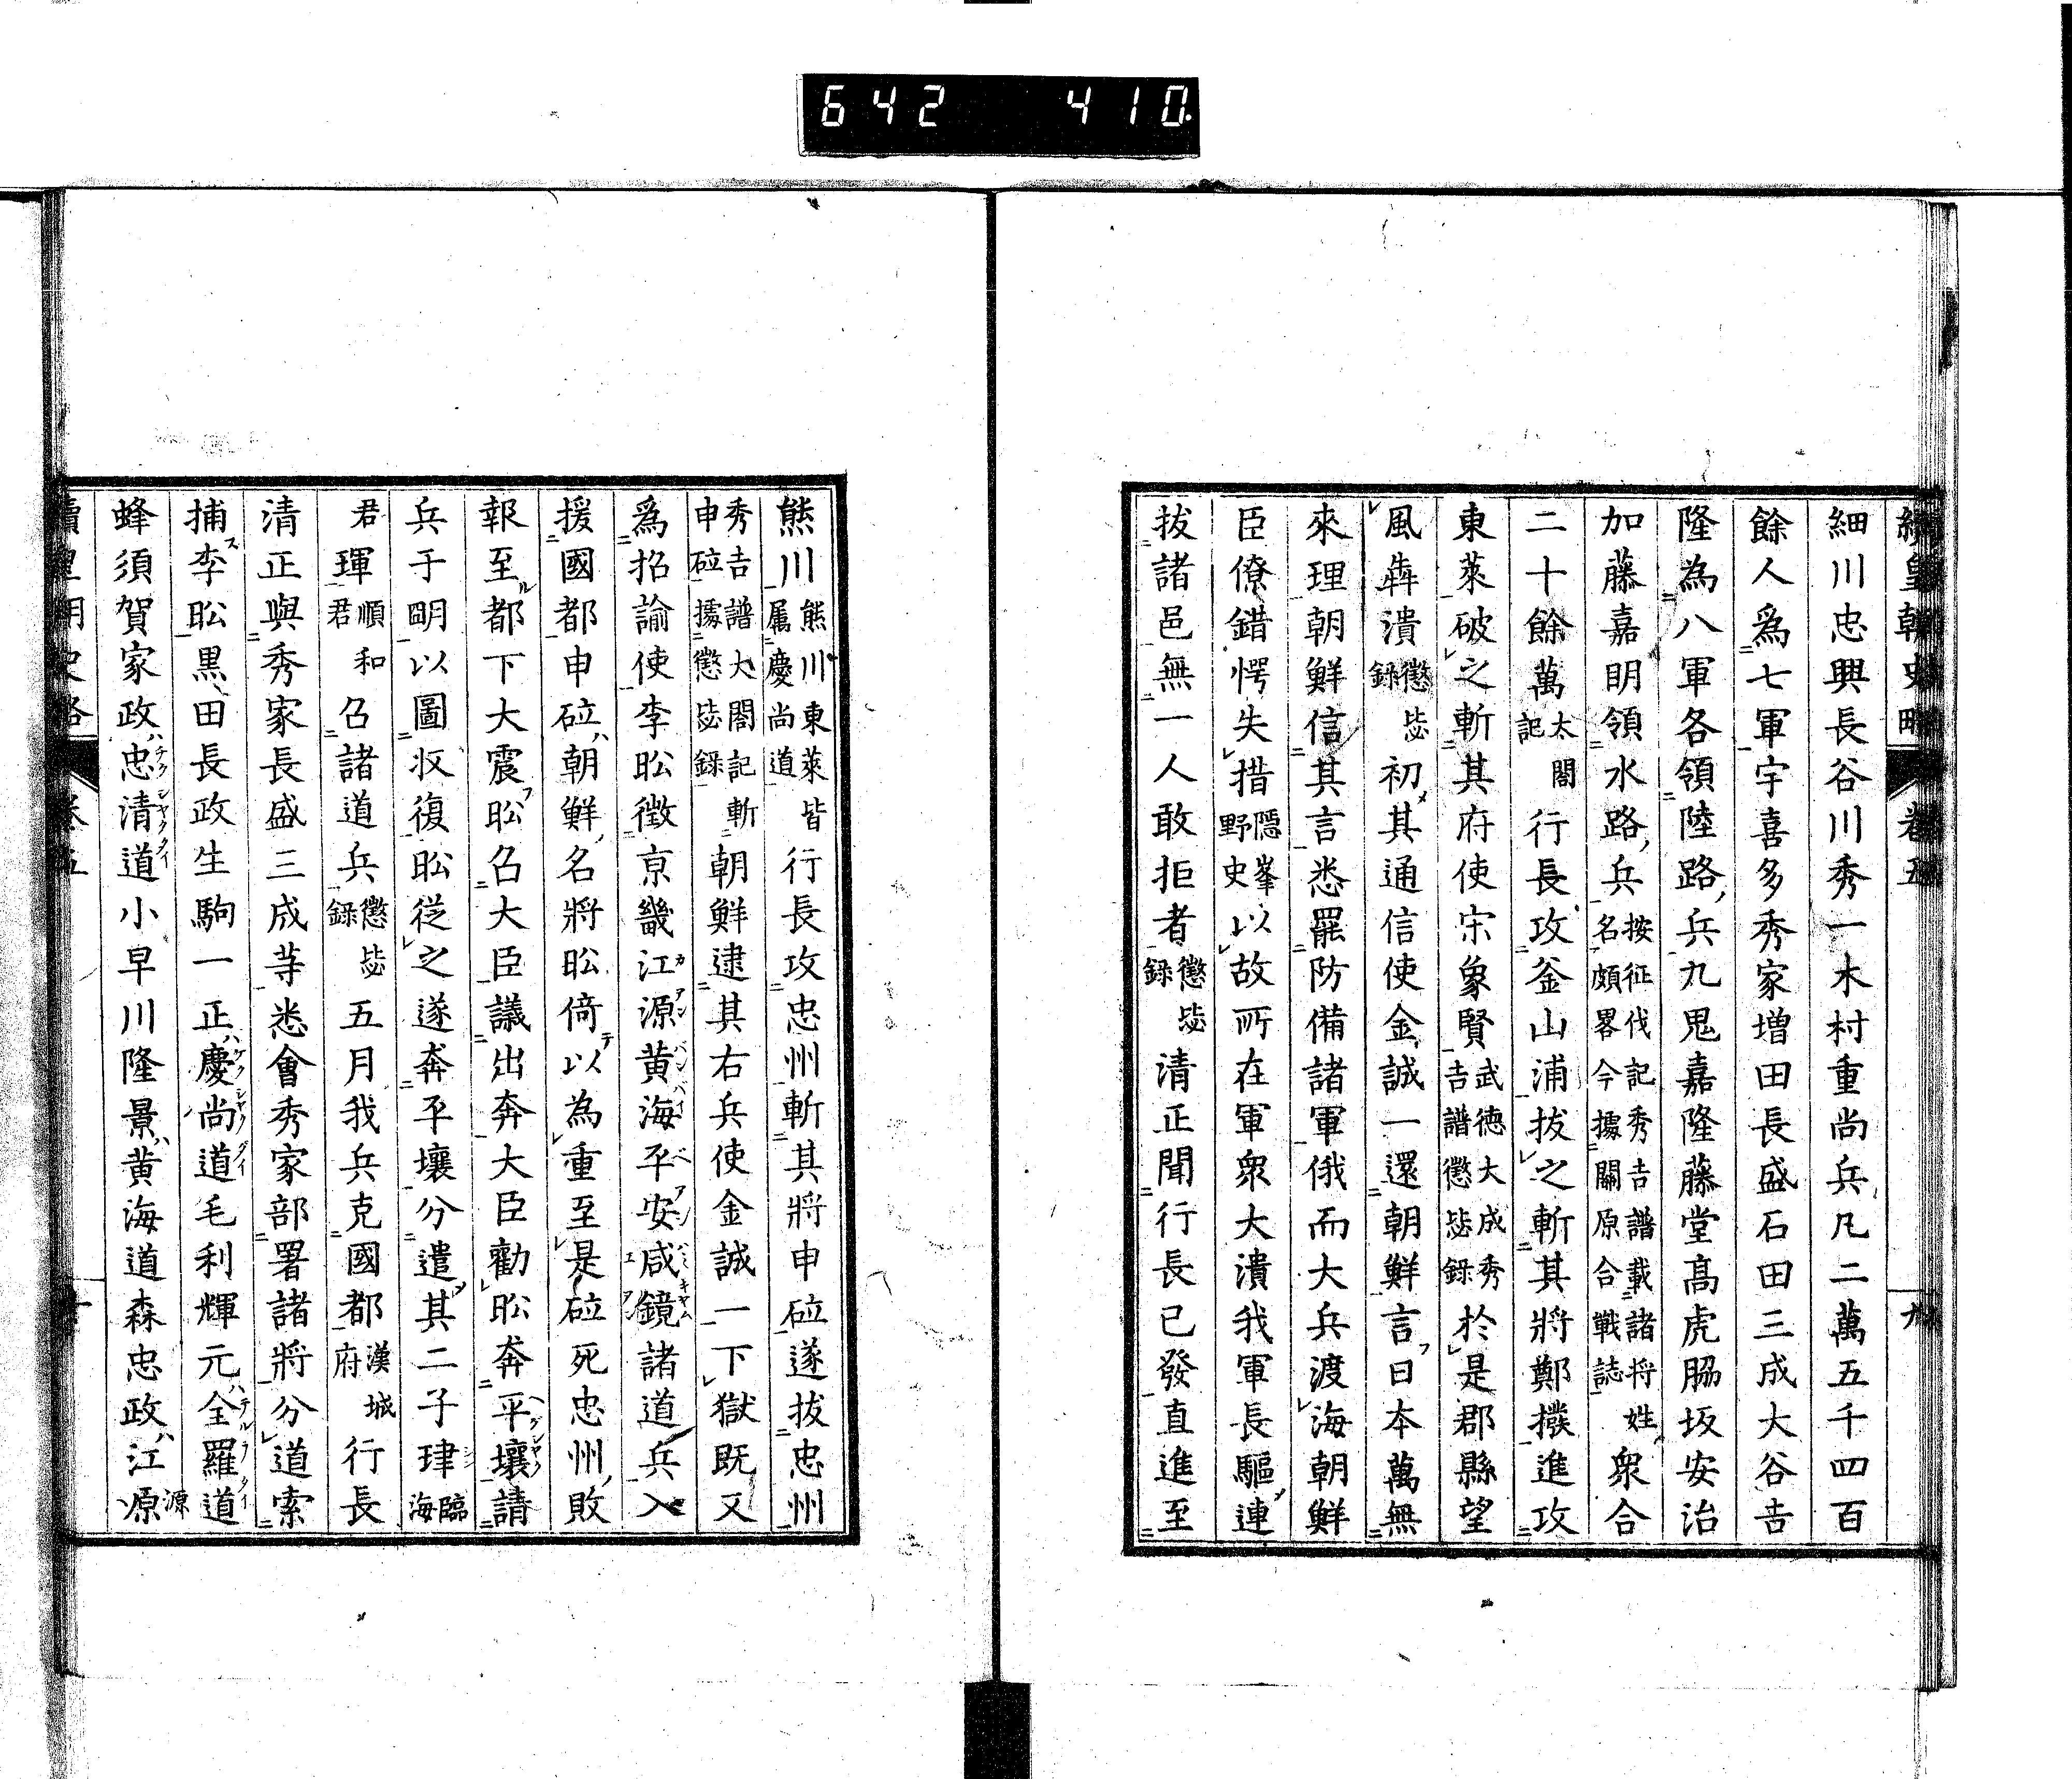 642 410
續皇朝史略 卷五 九
細川忠興長谷川秀一木村重尚兵凡二萬五千四百
餘人爲七軍宇喜多秀家増田長盛石田三成大谷吉
隆為八軍各領陸路兵九鬼嘉隆藤堂髙虎脇坂安治
加藤嘉明領水路兵按征伐記秀吉譜載諸将姓名頗畧今據關原合戦誌衆合
二十餘萬太閤記行長攻釜山浦拔之斬其將鄭撥進攻
東萊破之斬其府使宋象賢武德大成秀吉譜懲毖録於是郡縣望
風犇潰懲毖録初其通信使金誠一還朝鮮言曰本萬無
來理朝鮮信其言悉罷防備諸軍俄而大兵渡海朝鮮
臣僚錯愕失措隠峯野史以故所在軍衆大潰我軍長驅連
拔諸邑無一人敢拒者懲毖録清正聞行長已發直進至
熊川熊川東萊皆屬慶尚道行長攻忠州斬其將申砬遂拔忠州
秀吉譜大閤記申砬據懲毖録斬朝鮮逮其右兵使金誠一下獄既又
爲招諭使李昖徴京畿江源黄海平安咸鏡諸道兵入
援國都申砬朝鮮名將昖倚以為重至是砬死忠州敗
報至都下大震昖召大臣議出奔大臣勸昖奔平壤請
兵于明以圖收復昖從之遂奔平壤分遣其二子珒臨海
君琿順和君召諸道兵懲毖録五月我兵克國都漢城府行長
清正與秀家長盛三成等悉會秀家部署諸將分道索
捕李昖黒田長政生駒一正慶尚道毛利輝元全羅道
蜂須賀家政忠清道小早川隆景黄海道森忠政江原源
續皇朝史略 卷五 十